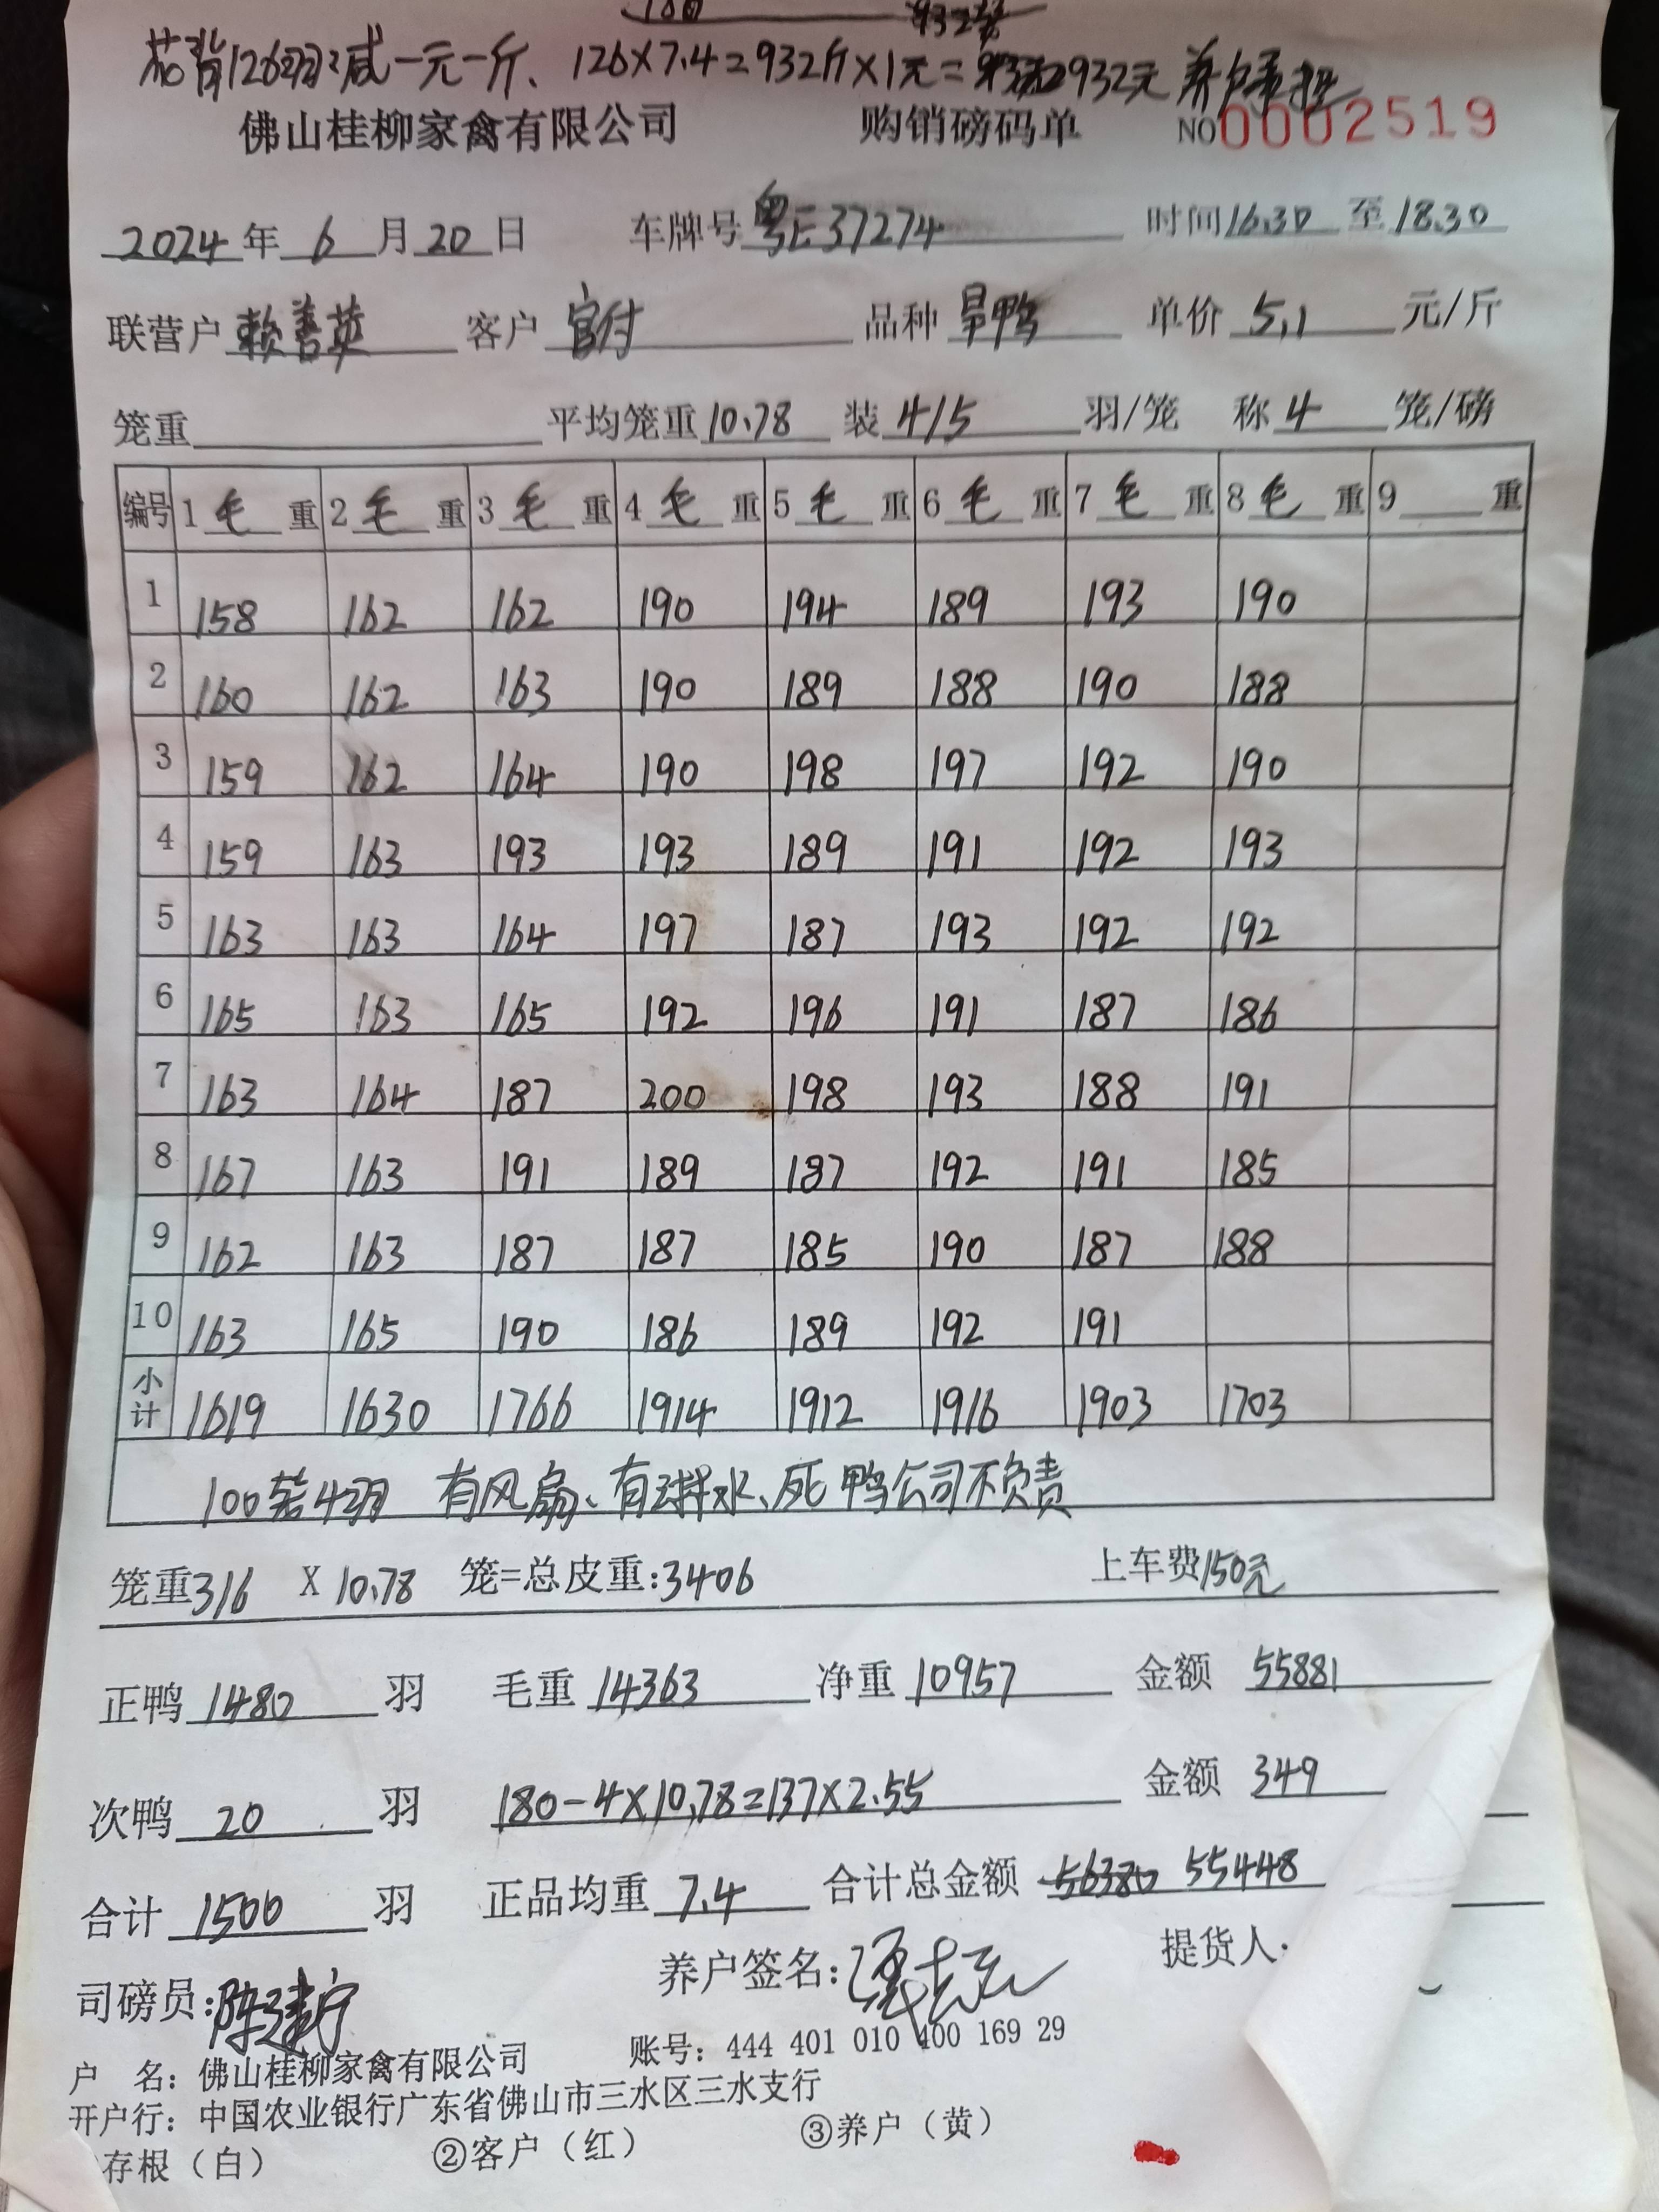 芯背126羽减一元一斤、126×7.4=932斤×1元=932元
佛山桂柳家禽有限公司 购销磅码单 NO0002519
2024年6月20日 车牌号粤E37274 时间16.30至18.30
联营户赖善英 客户官付 品种旱鸭 单价5.1元/斤
笼重 平均笼重10.78 装4/5羽/笼 称4笼/磅
编号 1毛重 2毛重 3毛重 4毛重 5毛重 6毛重 7毛重 8毛重 9重
1 158 162 162 190 194 189 193 190
2 160 162 163 190 189 188 190 188
3 159 162 164 190 198 197 192 190
4 159 163 193 193 189 191 192 193
5 163 163 164 197 187 193 192 192
6 165 163 165 192 196 191 187 186
7 163 164 187 200 198 193 188 191
8 167 163 191 189 187 192 191 185
9 162 163 187 187 185 190 187 188
10 163 165 190 186 189 192 191
小计 1619 1630 1766 1914 1912 1916 1903 1703
100笼4羽 有风扇、有淋水、死鸭公司不负责
笼重316 X 10.78 笼=总皮重:3406 上车费150元
正鸭1480羽 毛重14363 净重10957 金额55881
次鸭20羽 180-4×10.78=137×2.55 金额349
合计1500羽 正品均重7.4 合计总金额 56380 55448
司磅员:陈建宁 养户签名: 提货人
户 名：佛山桂柳家禽有限公司 账号：444 401 010 400 169 29
开户行：中国农业银行广东省佛山市三水区三水支行
存根（白） ②客户（红） ③养户（黄）